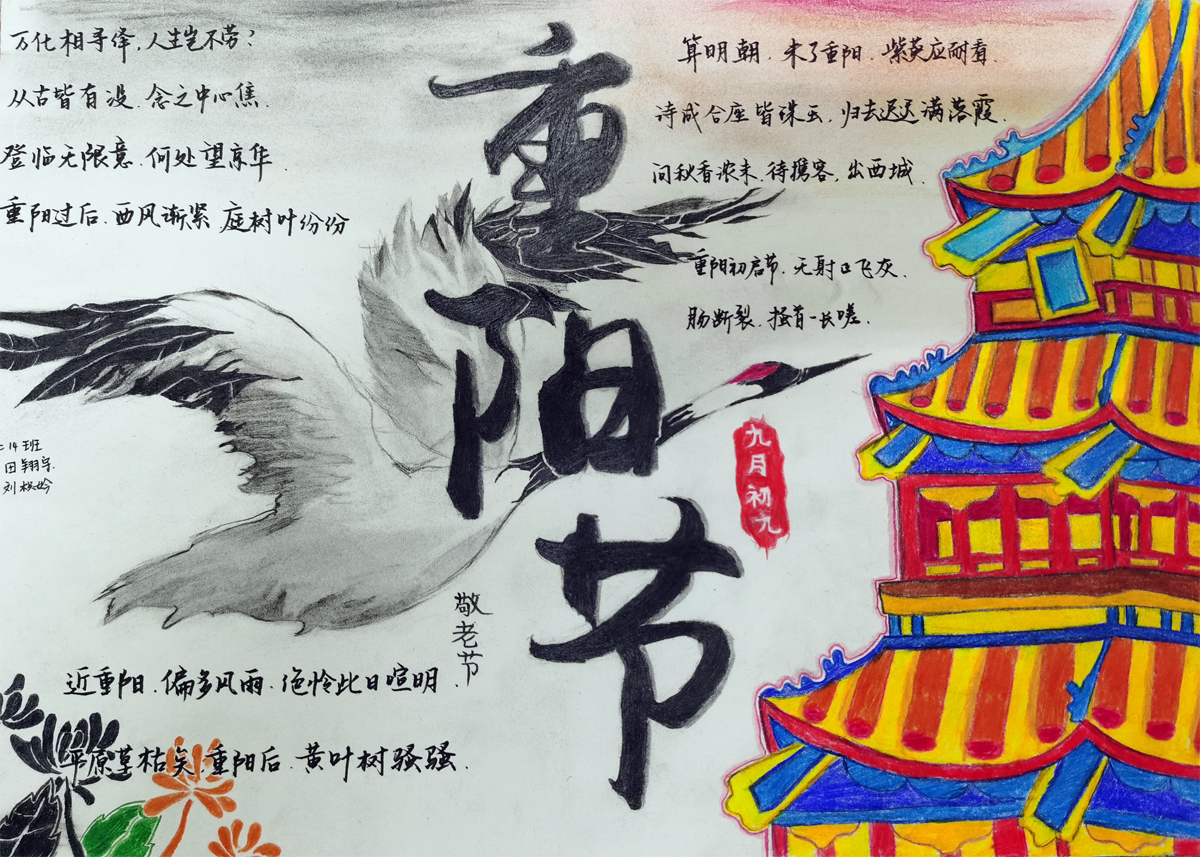 万化相寻绎,人生岂不劳?
从古皆有没.念之中心焦.
登临无限意.何处望京华.
重阳过后.西风渐紧 庭树叶份份
重阳节
算明朝.未了重阳.紫萸应耐看.
诗成合座皆珠玉,归去迟迟满落霞.
问秋香浓未.待携客,出西城.
重阳初启节.无射口飞灰.
肠断裂.搔首一长嗟.
九月初九
敬老节
14班
田翔宇.
近重阳.偏多风雨.绝怜此日暄明.
平原草枯矣.重阳后.黄叶树骚骚.